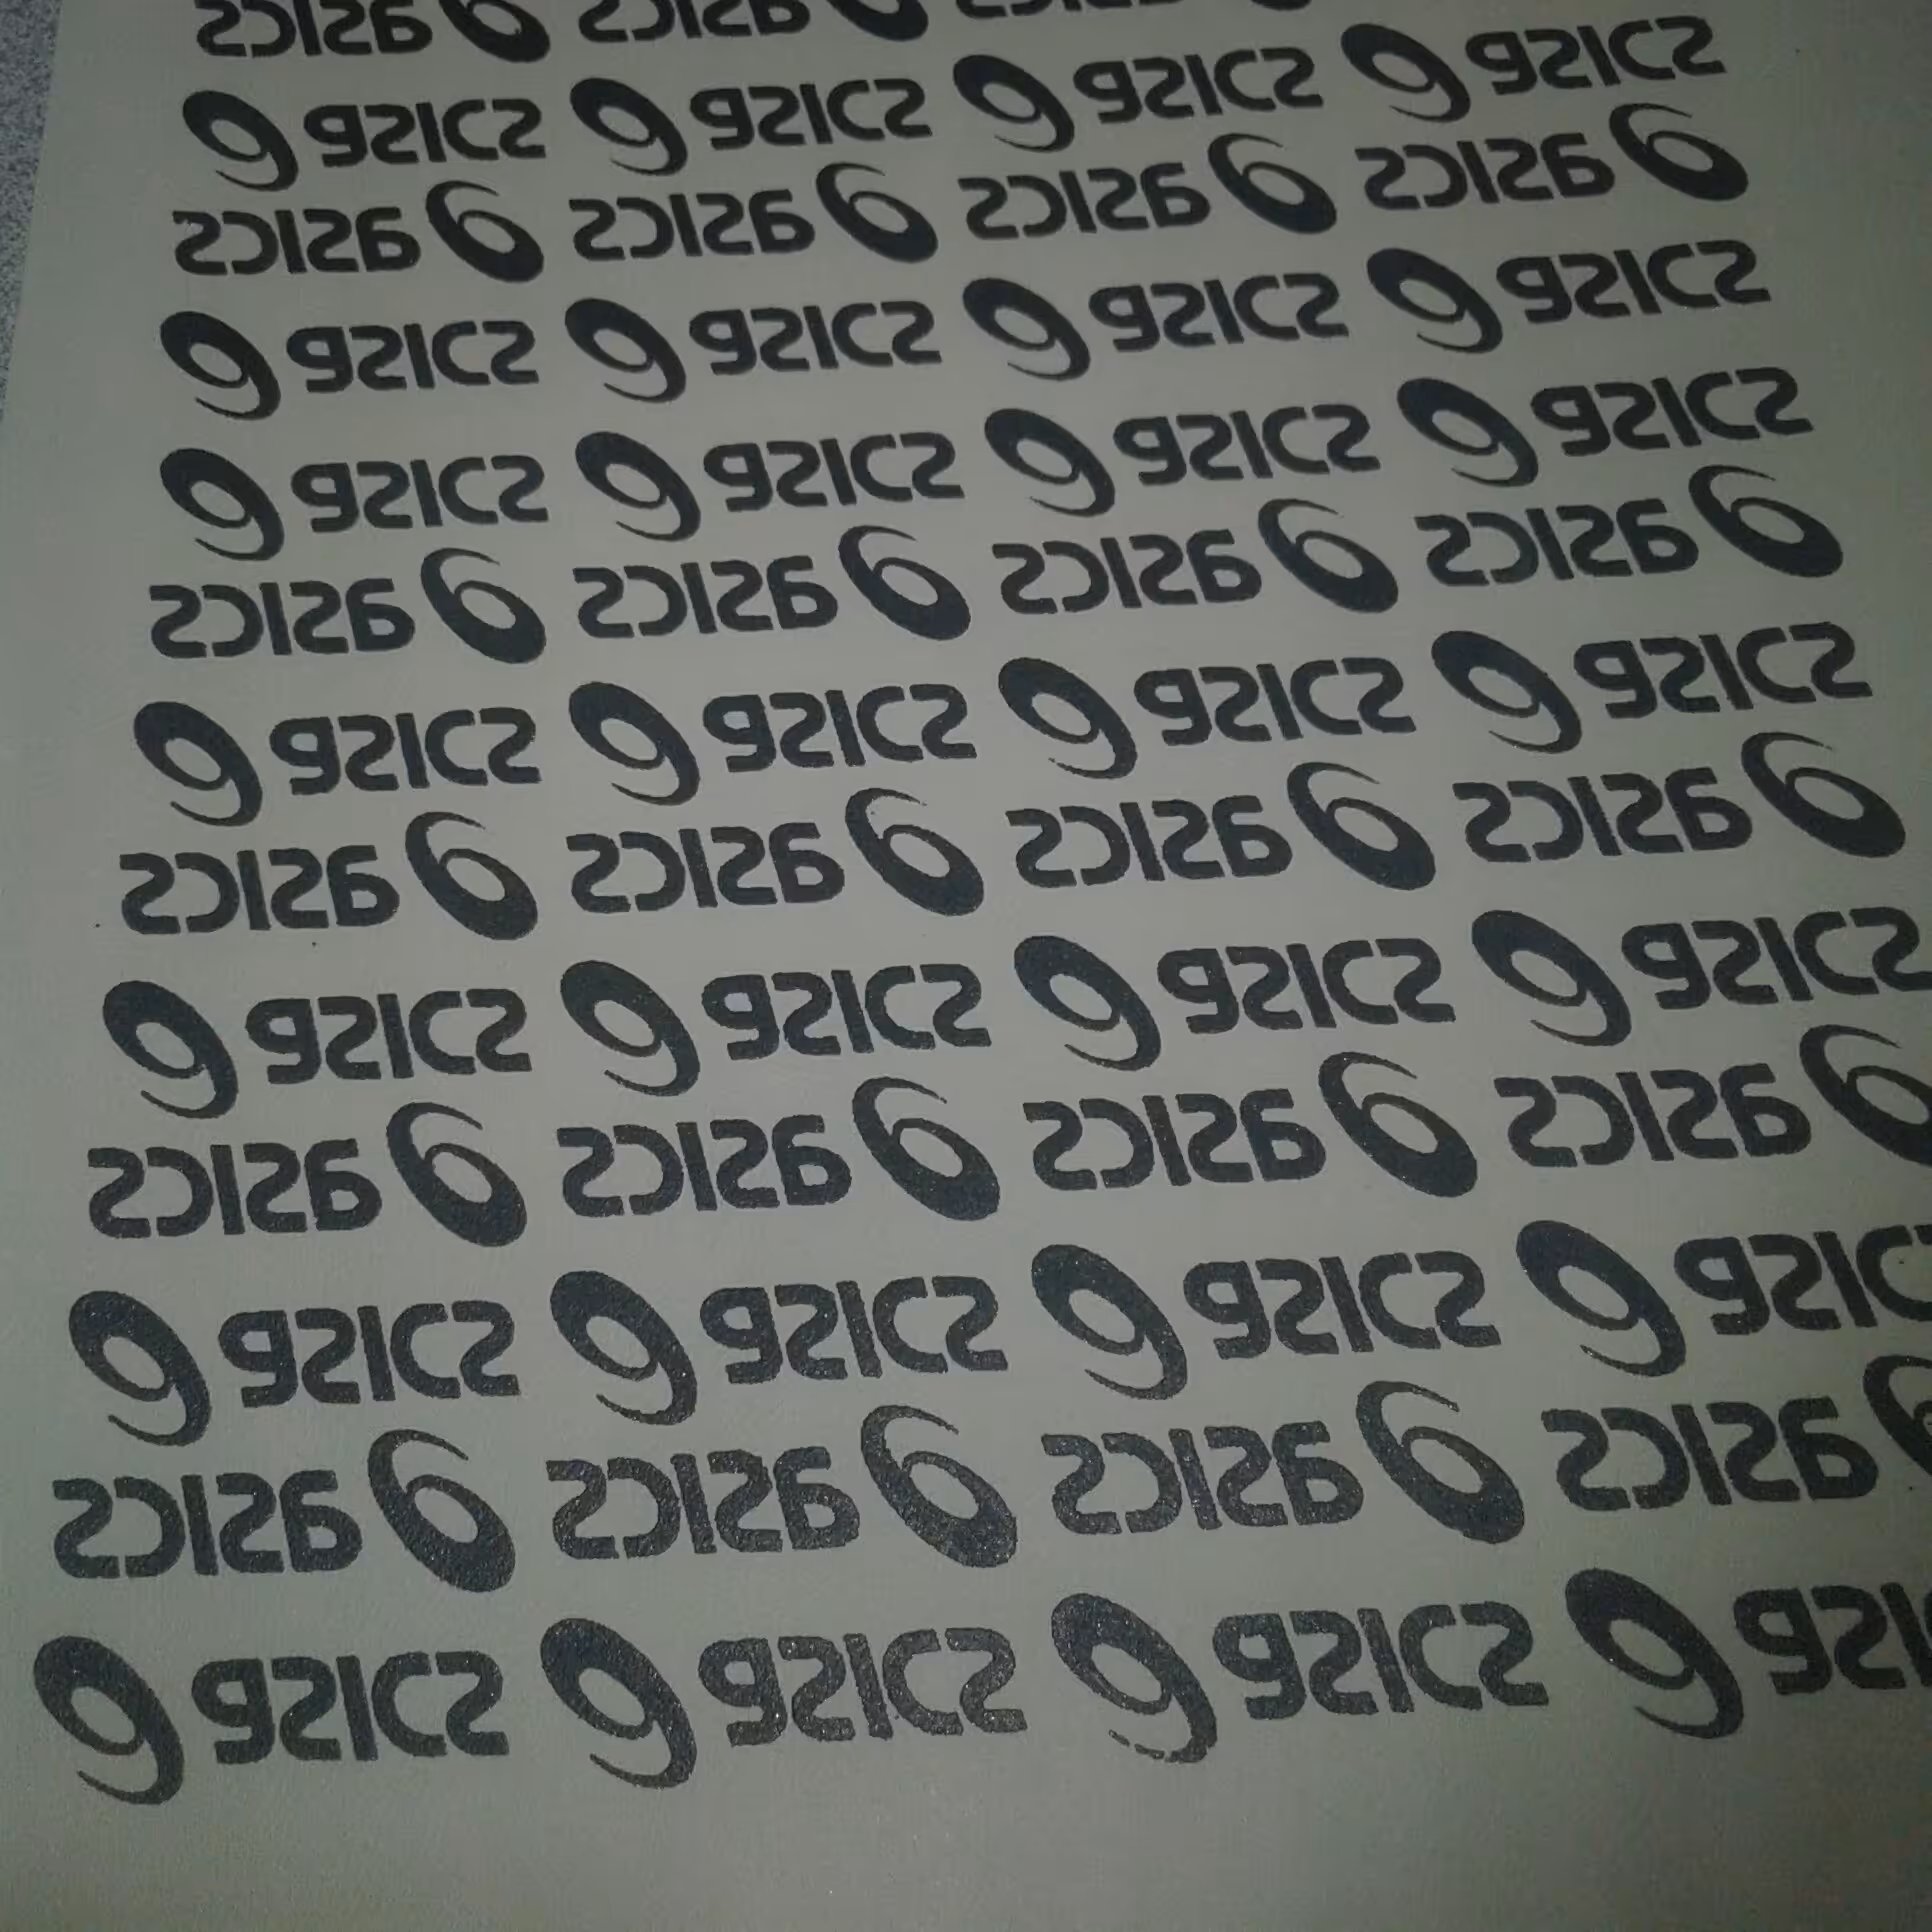 asics asics
asics asics asics asics
asics asics asics asics
asics asics asics asics
asics asics asics asics
asics asics asics asics
asics asics asics asics
asics asics asics asics
asics asics asics asics
asics asics asics asics
asics asics asics asic
asics asics asics asics
asics asics asics asi